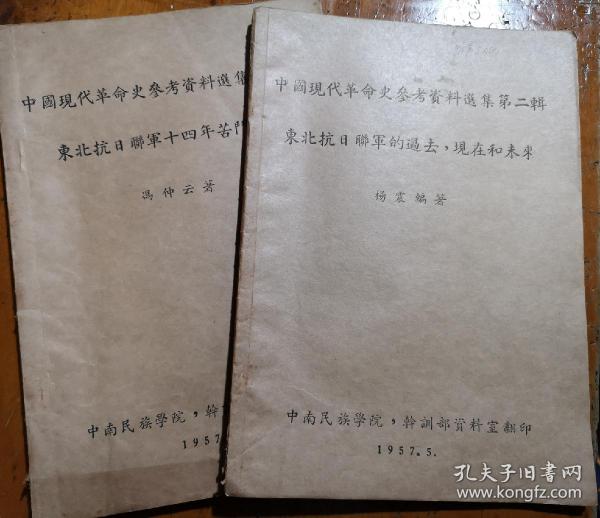 中國現代革命史參考資料選集
東北抗日聯軍十四年苦鬥
馮仲云著
中南民族學院，幹
1957
中國現代革命史參考資料選集第二輯
東北抗日聯軍的過去，現在和未來
楊震編著
中南民族學院，幹訓部資料室翻印
1957.5.
孔夫子旧书网
www.kongfz.com